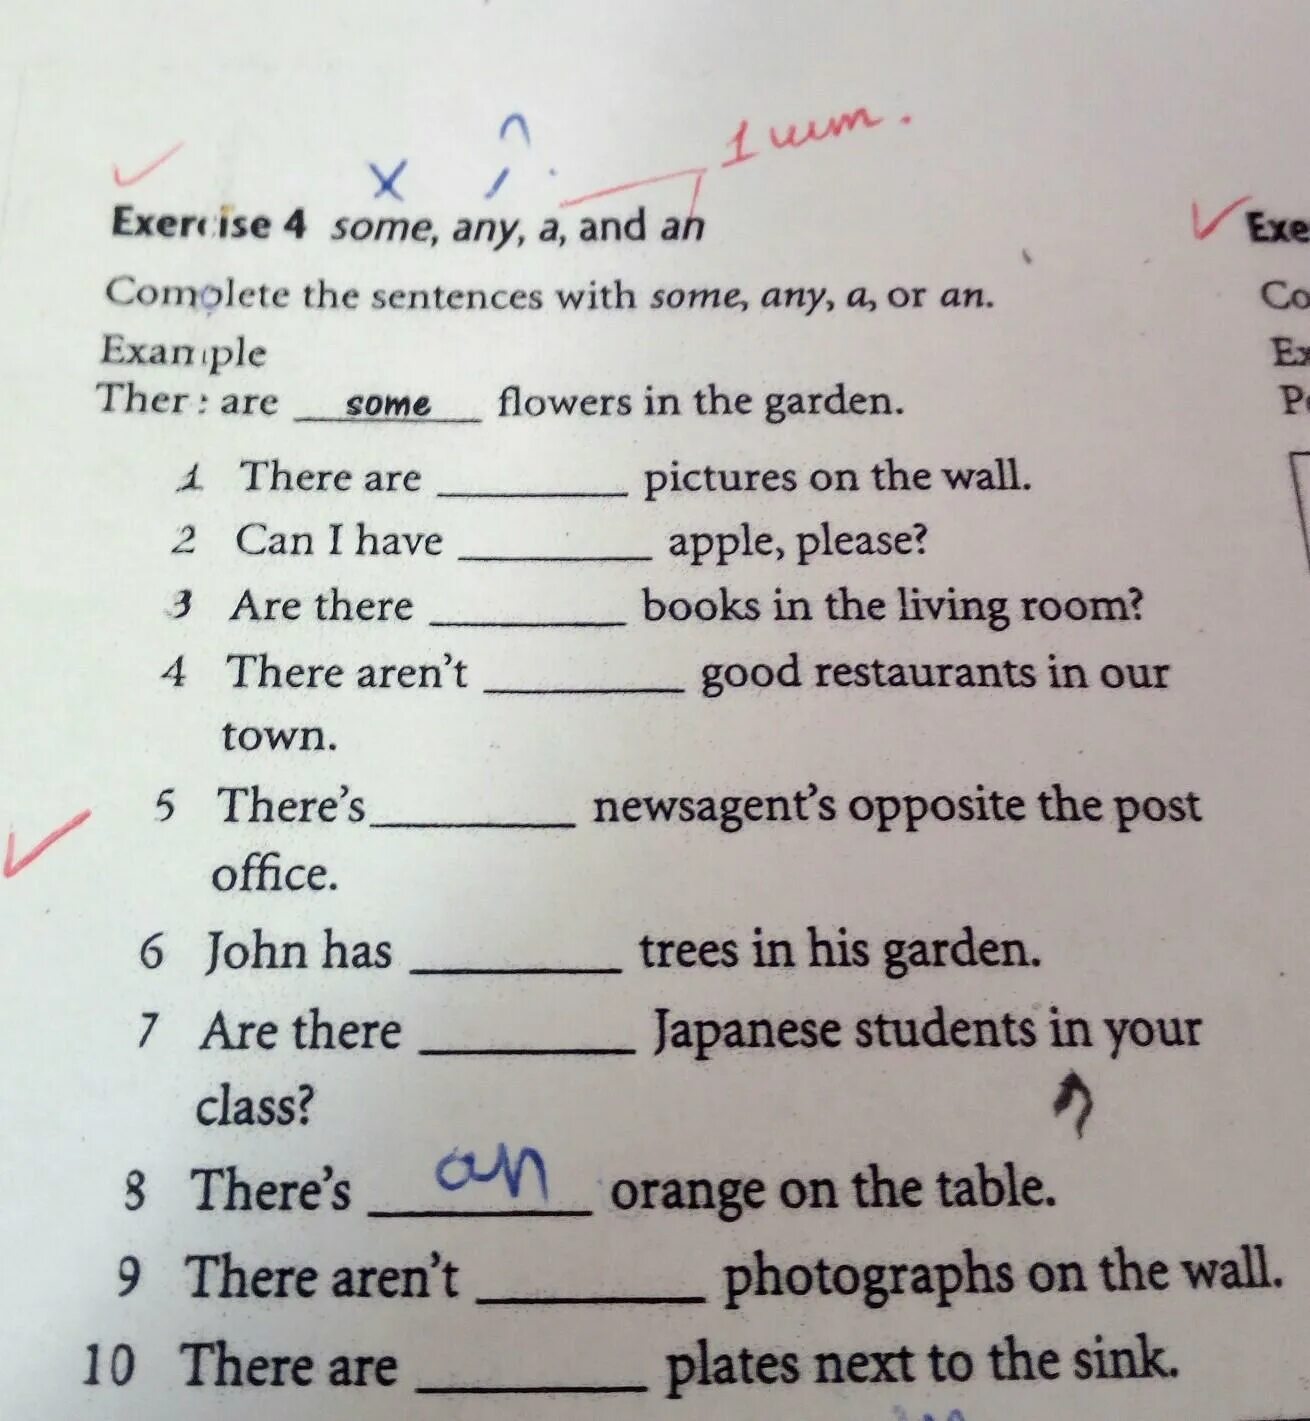 1 шт.
Exercise 4 some, any, a, and an
Exe
Complete the sentences with some, any, a, or an.
Co
Example
Ex
There are some flowers in the garden.
1 There are ________ pictures on the wall.
2 Can I have ________ apple, please?
3 Are there ________ books in the living room?
4 There aren't ________ good restaurants in our
town.
5 There's ________ newsagent's opposite the post
office.
6 John has ________ trees in his garden.
7 Are there ________ Japanese students in your
class?
8 There's an orange on the table.
9 There aren't ________ photographs on the wall.
10 There are ________ plates next to the sink.